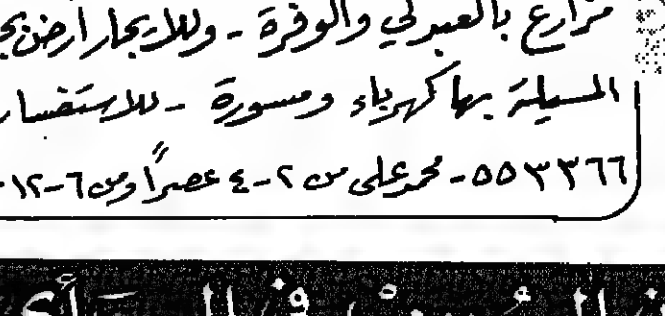 مزارع بالعبدلي والوفرة - وللايجار ارض
المسيلة بها كهرباء ومسورة - للاستفسار
٥٥٣٣٦٦ - محمد علي من ٢-٤ عصراً ومن ٦-١٢